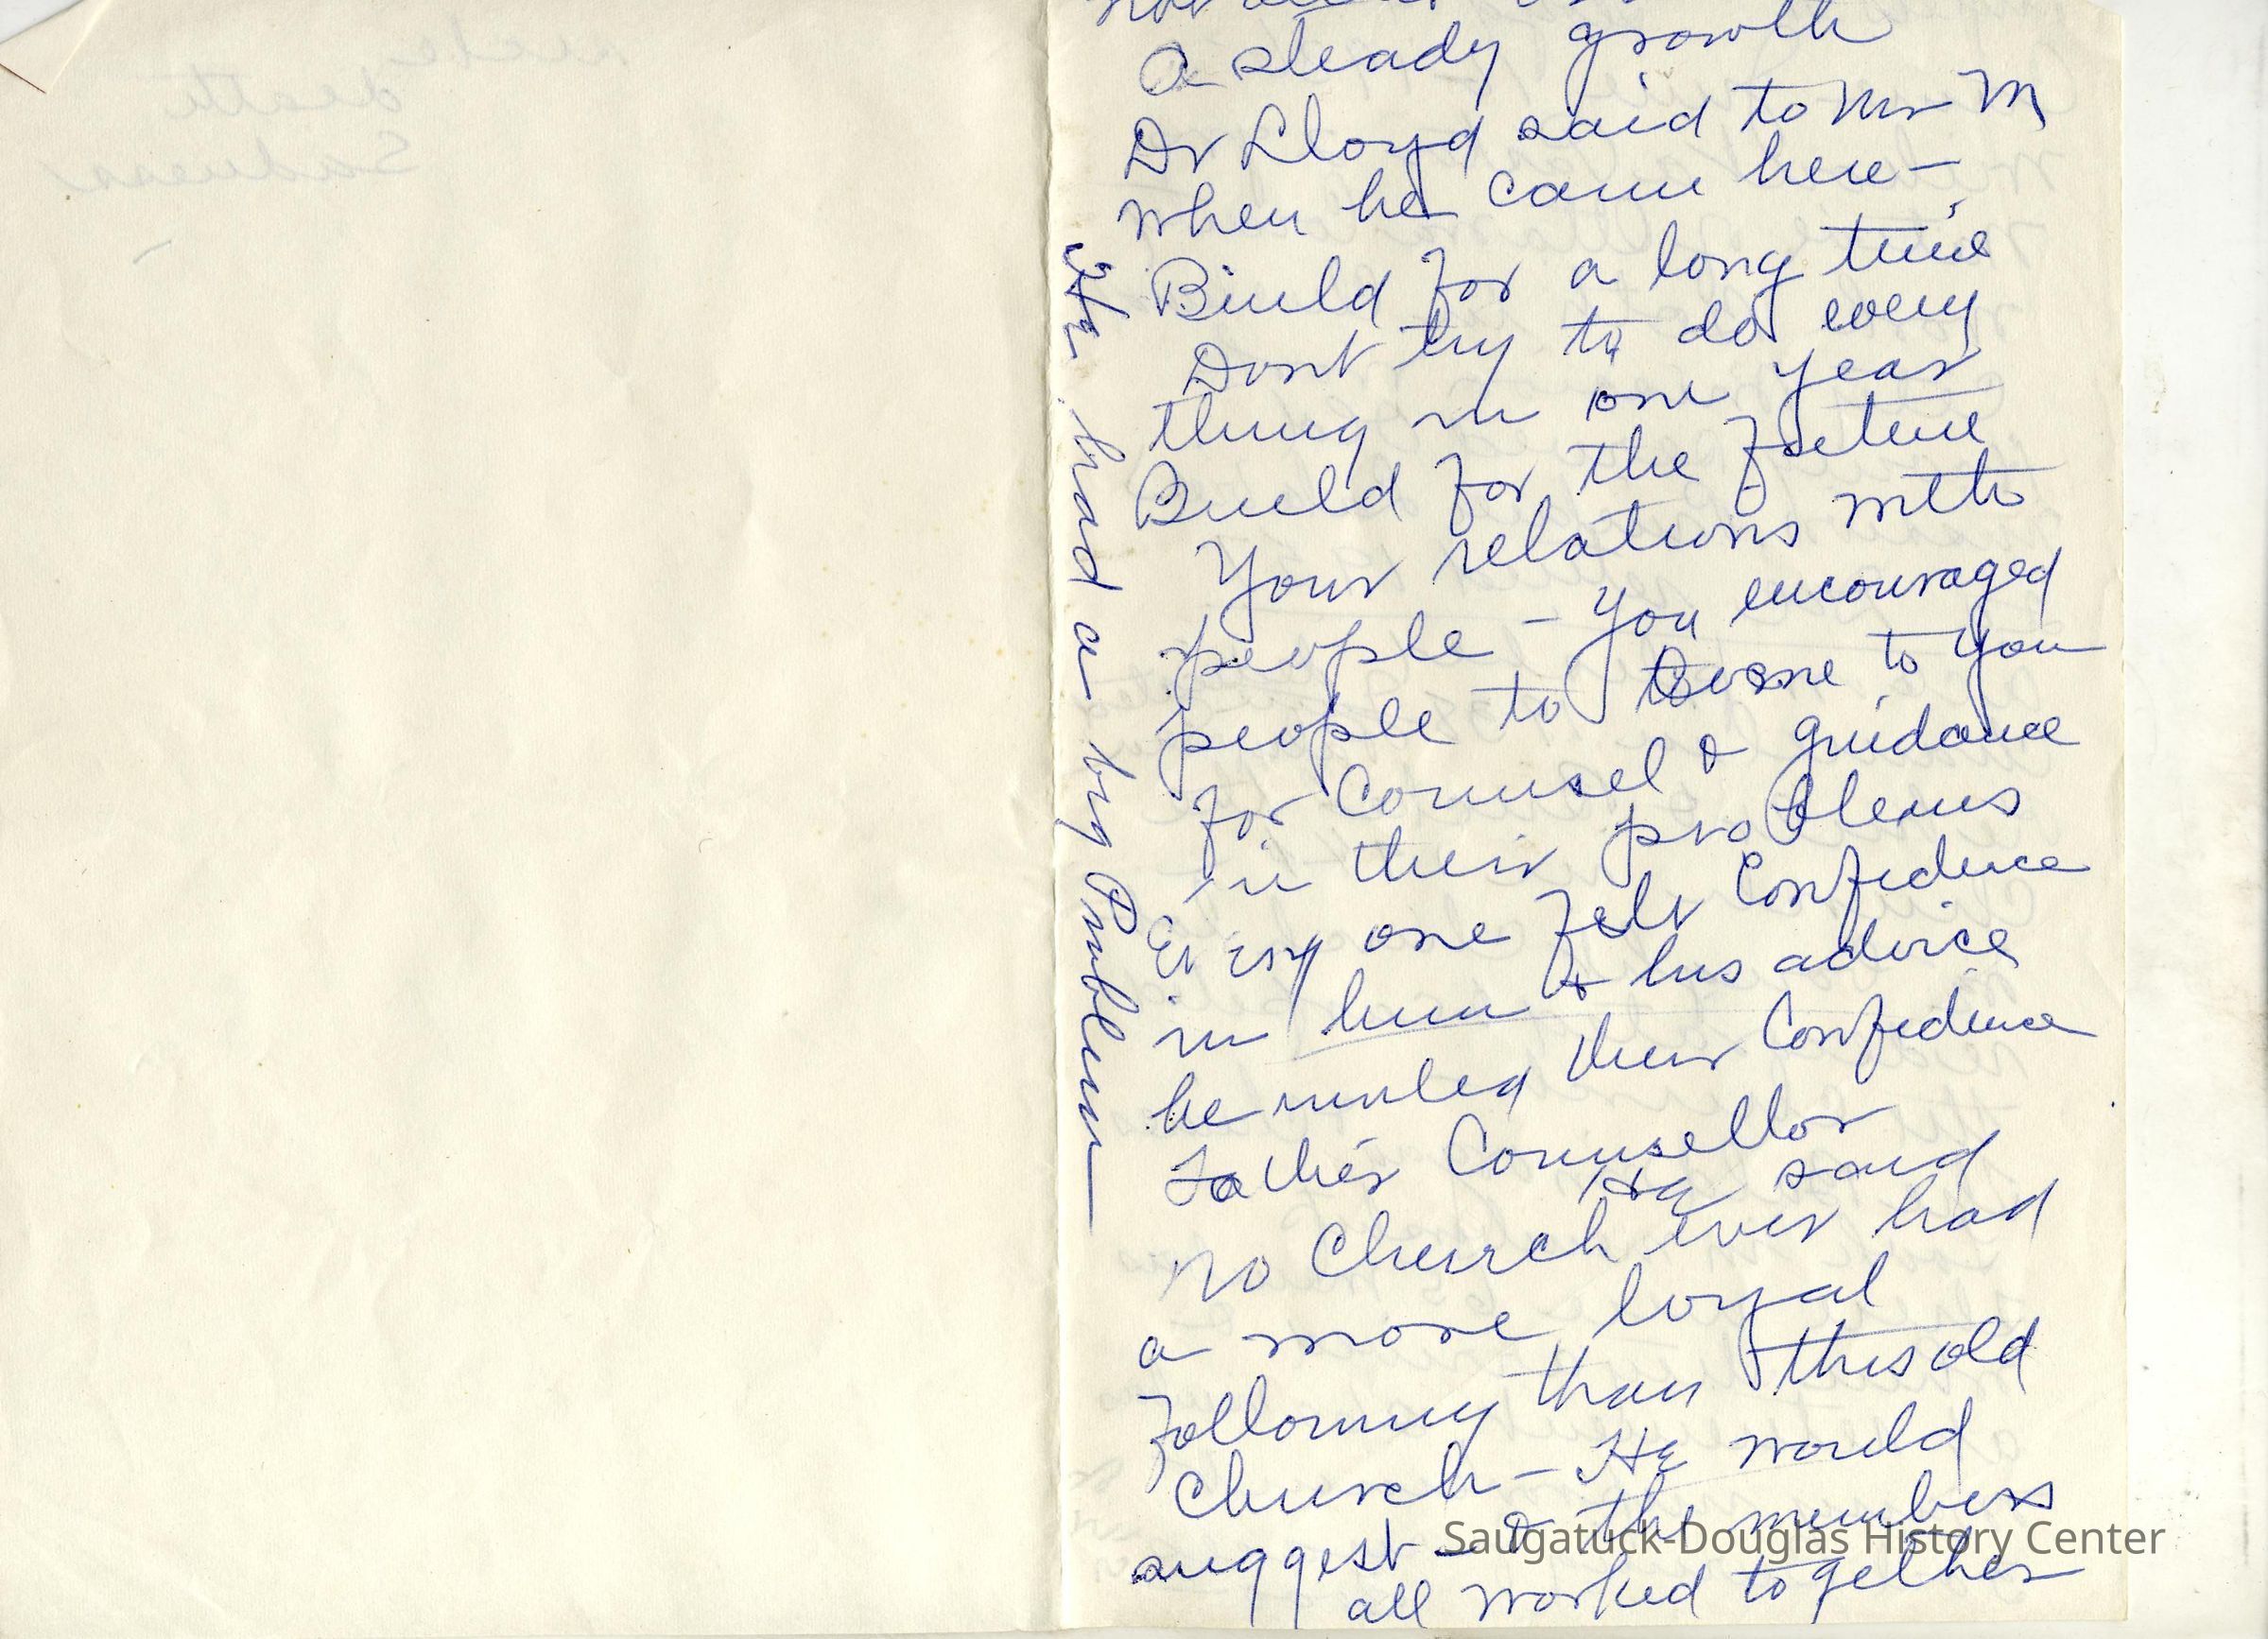 A steady growth
Dr Lloyd said to Mr M
when he came here-
Build for a long time
Dont try to do every
thing in one year
Build for the future
Your relations with
people - You encouraged
people to come to you
for Counsel & guidance
in their problems
Every one felt Confidence
in him & his advice
he invited their Confidence
Father Counsellor
He said
no Church ever had
a more loyal
following than this old
Church - He would
suggest - & the members
all worked together
He had a big Problem
Saugatuck-Douglas History Center